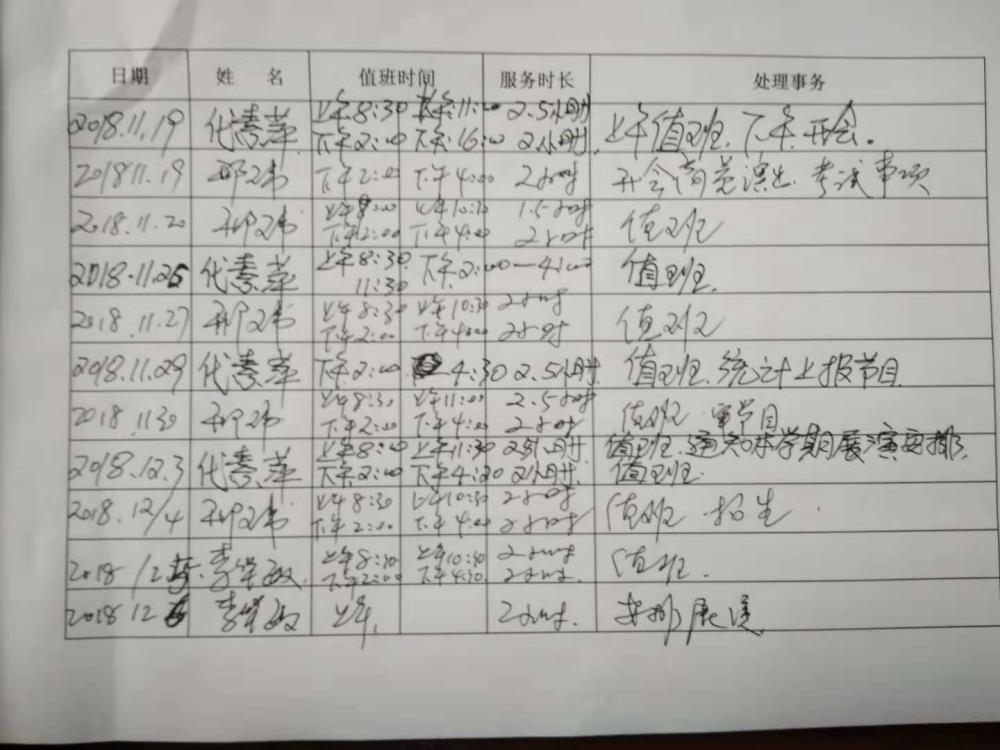 日期 姓 名 值班时间 服务时长 处理事务
2018.11.19 代素萍 上午8:30 上午11:00 2.5小时 上午值班、下午开会。
下午2:00 下午16:00 2小时
2018 11.19 下午2:00 下午4:00 2小时 开会 演出 考试事项
2018.11.20 上午 上午10:30 1.5小时 值班
下午2:00 下午4:00 2小时
2018.11.26 代素萍 上午8:30 下午2:00—4:00 值班
11:30
2018.11.27 上午8:30 上午10:30 2小时 值班
下午2:00 下午4:00 2小时
2018.11.29 代素萍 下午2:00 4:30 2.5小时 值班、统计上报节目
2018 1130 上午8:30 上午11:00 2.5小时 值班 节目
下午2:00 下午4:00 2小时
2018.12.3 代素萍 上午8:00 上午11:30 小时 值班、通知本学期展演安排,
下午2:00 下午4:30 2小时 值班
2018.12/4 上午8:30 上午10:30 2小时 值班 招生
下午2:00 下午4:00 2小时
2018 12 李 上午8:30 上午10:30 2小时 值班.
下午2:00 下午4:30 2小时
2018 12 李 上午 2小时. 安排展演